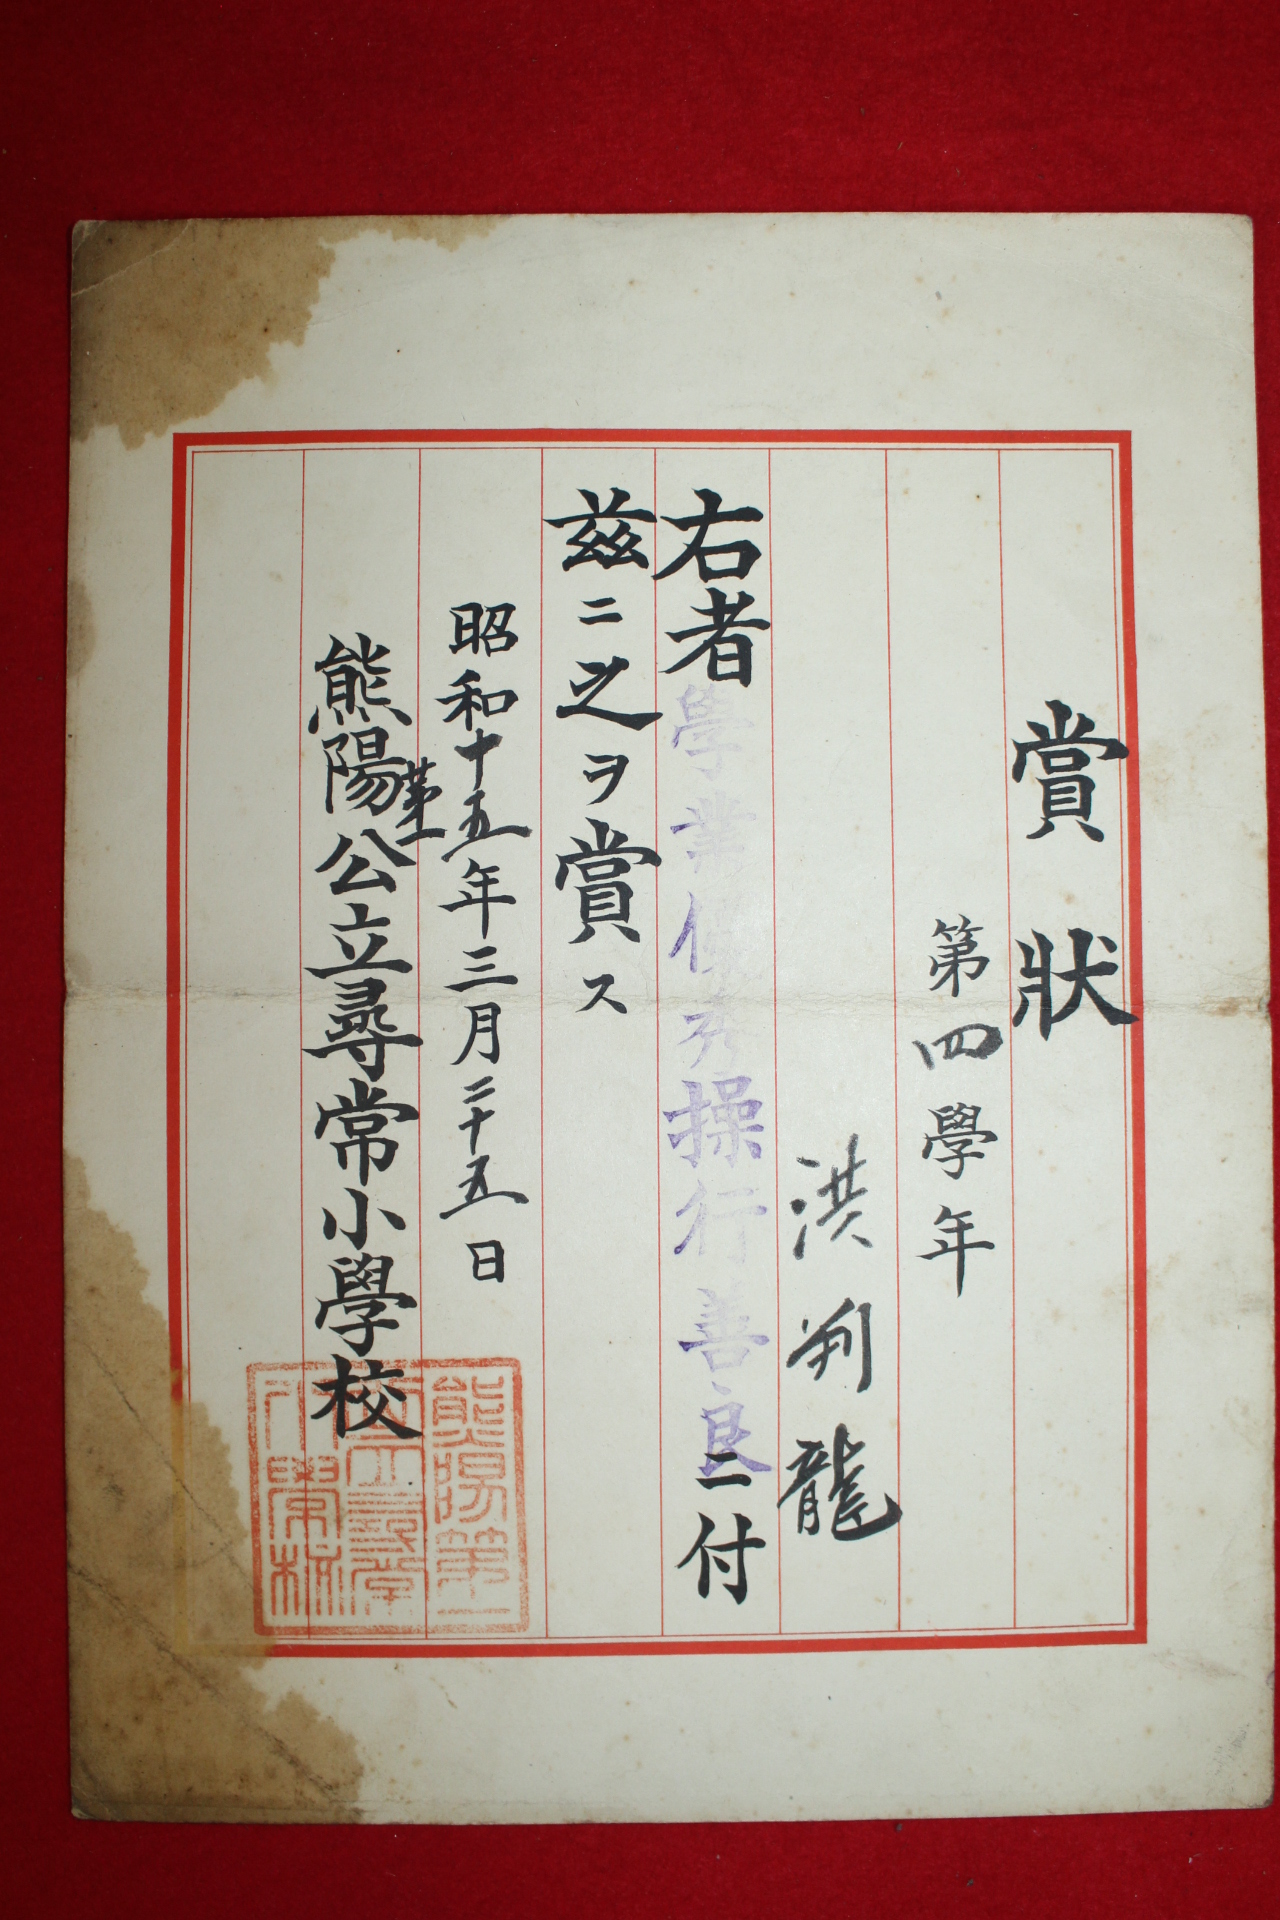 賞狀
第四學年
洪炳龍
右者學業優秀操行善良ニ付
茲ニ之ヲ賞ス
昭和十五年三月二十五日
熊陽第一公立尋常小學校
熊陽第一
公立尋常
小學校